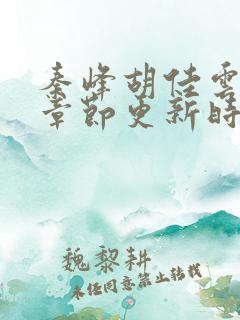 秦峰胡佳雲
章節更新時
魏黎耕
未经同意禁止转载